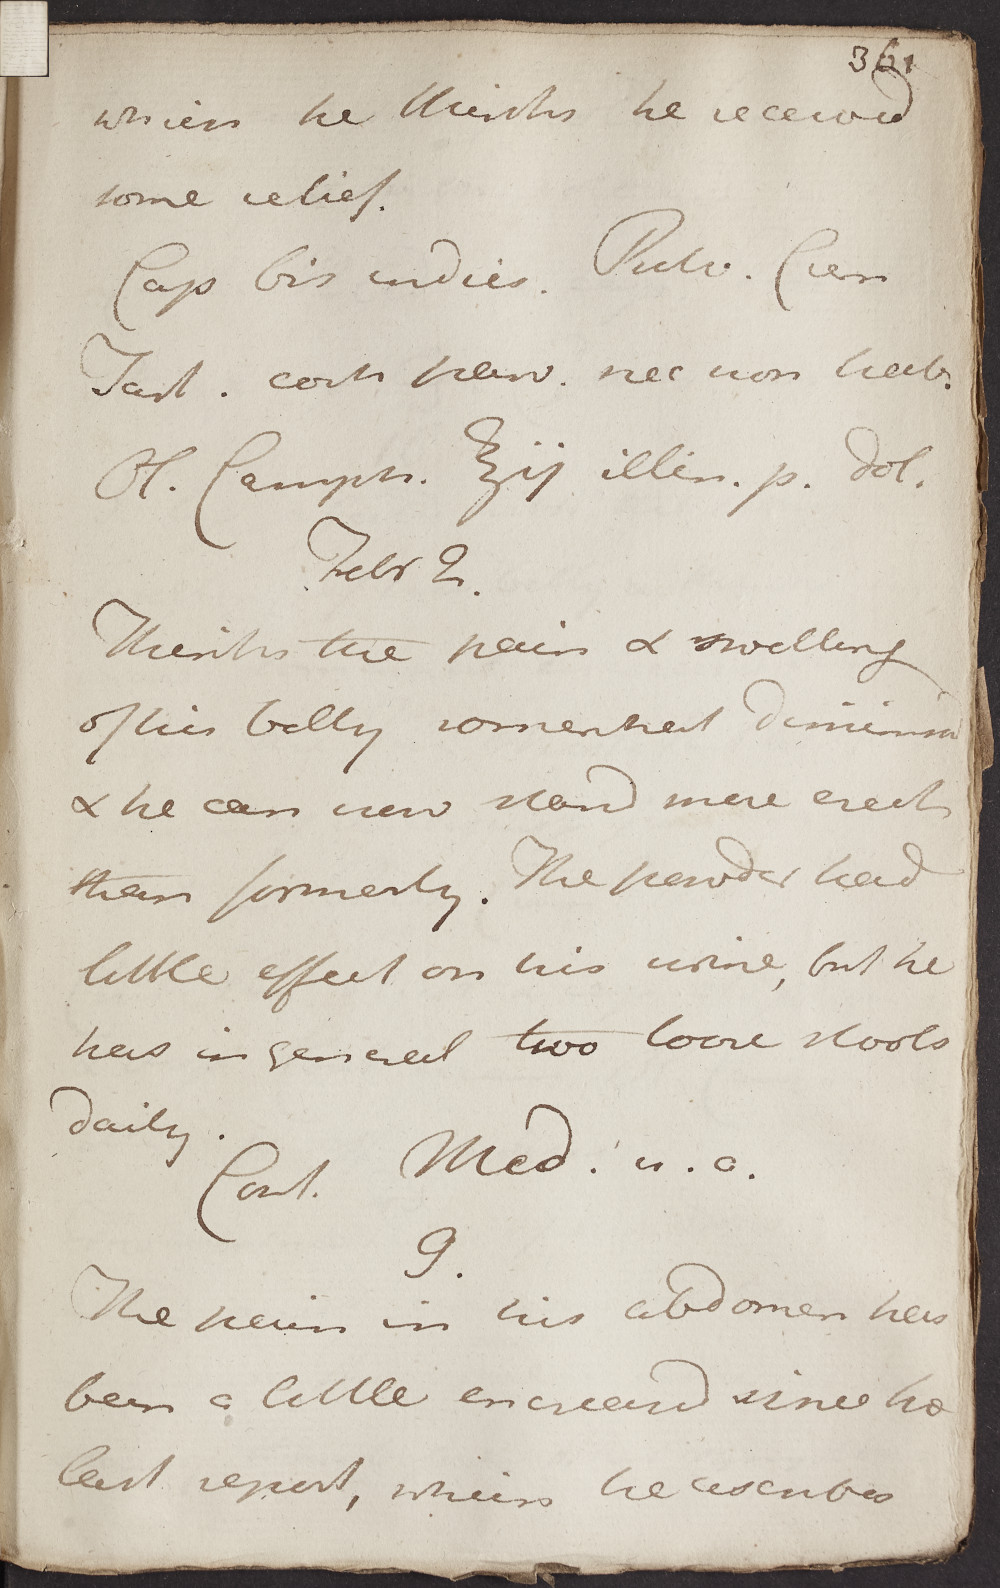 361
which he thinks he received
some relief.
Cap bis indies. Pulv. Crem
Tart. cort peruv. nec non hab.
Ol. Camph. ℥ij illin. p. dol.
Febr 2.
Thinks the pain & swelling
of his belly somewhat diminish
& he can now stand more erect
than formerly. The powder had
little effect on his urine, but he
has in general two loose stools
daily.
Cont. Med. u. a.
9.
The pain in his abdomen has
been a little encreased since
last report, which he ascribes